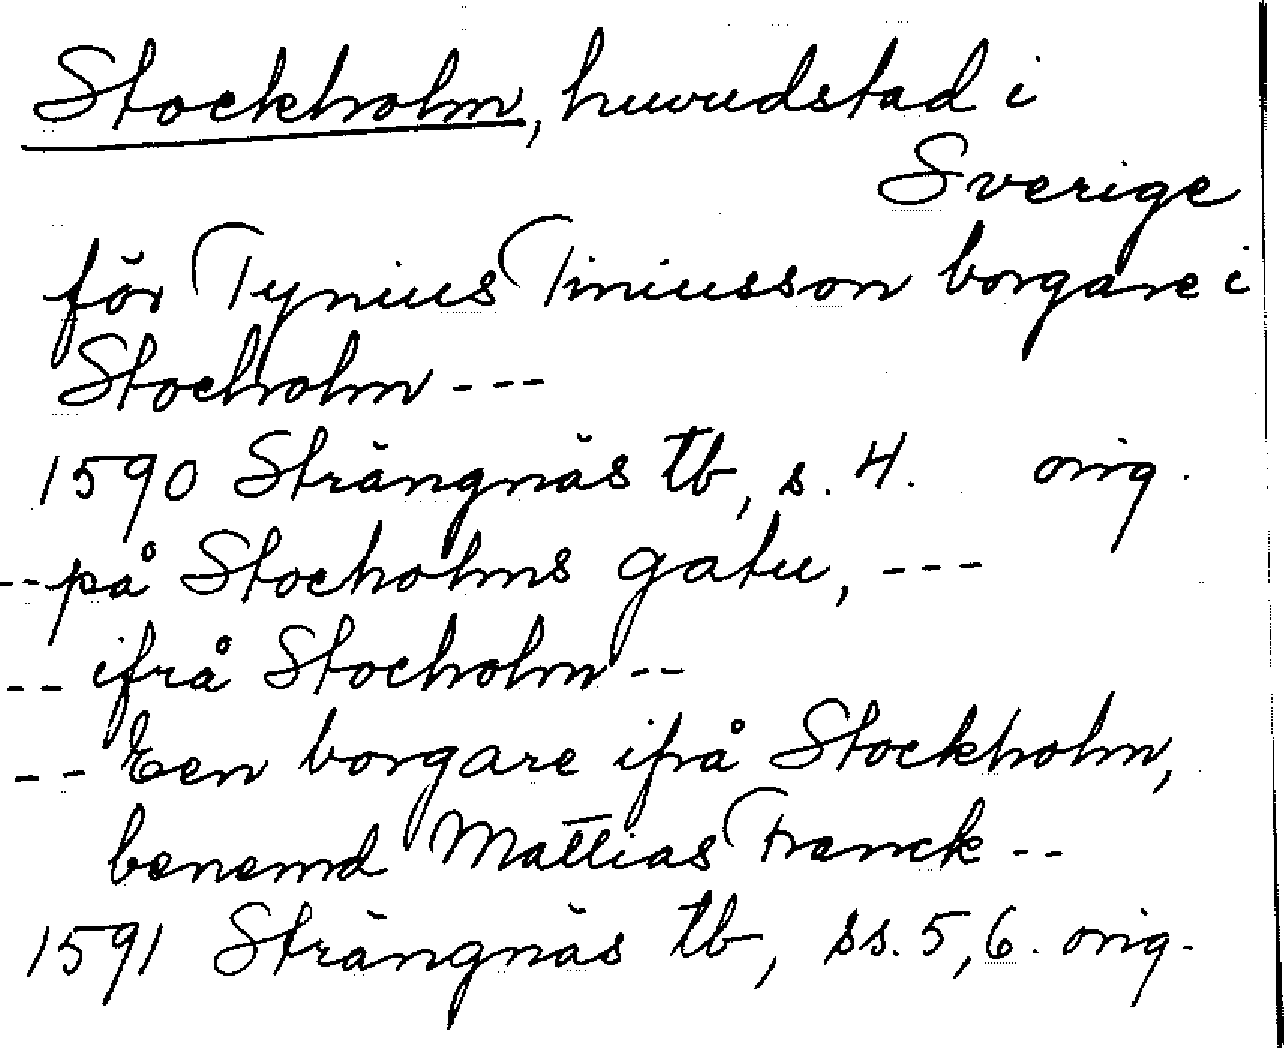 Stockholm, huvudstad i
Sverige
för Tynius Tiniusson borgare i
Stocholm ---
1590 Strängnäs tb, s. 4. orig.
--på Stocholms gatu, ---
-- ifrå Stocholm --
-- Een borgare ifrå Stockholm,
benemd Mattias Franck --
1591 Strängnäs tb, ss. 5, 6. orig.